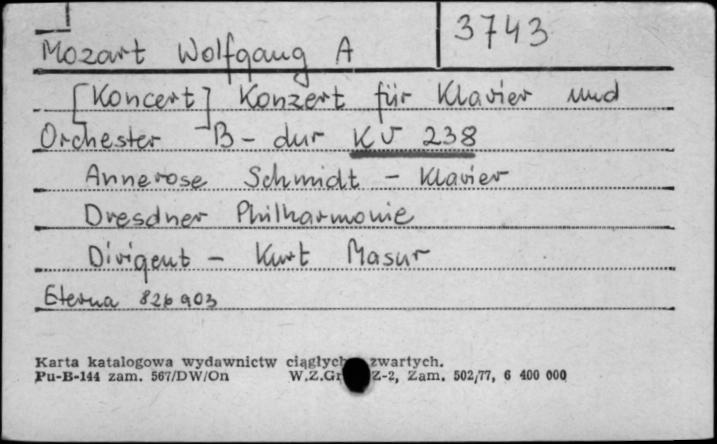 3743
Mozart Wolfgang A
[Koncert] Konzert für Klavier und
Orchester B-dur KV 238
Annerose Schmidt - Klavier
Dresdner Philharmonie
Dirigent - Kurt Masur
Eterna 826 903
Karta katalogowa wydawnictw ciągłych zwartych.
Pu-B-144 zam. 567/DW/On W.Z.Gr Z-2, Zam. 502/77, 6 400 000